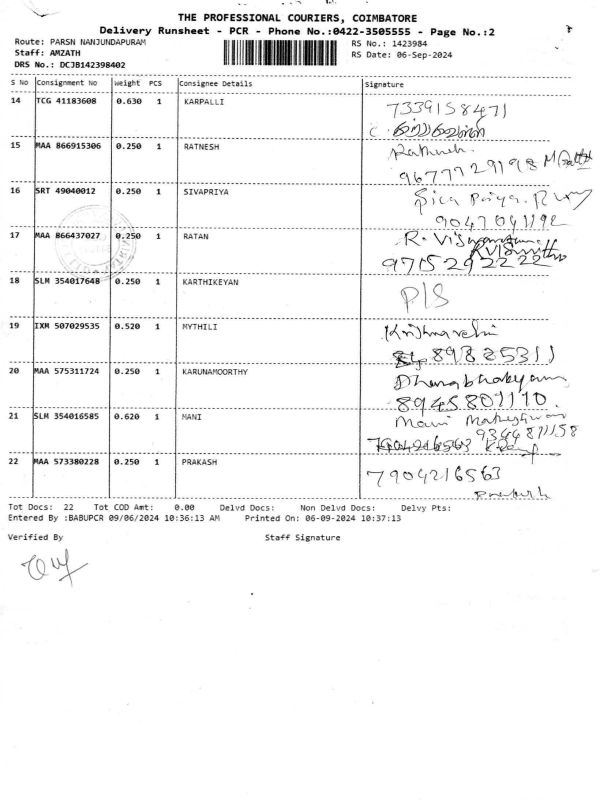 THE PROFESSIONAL COURIERS, COIMBATORE
Delivery Runsheet - PCR - Phone No.:0422-3505555 - Page No.:2
Route: PARSN NANJUNDAPURAM
RS No.: 1423984
Staff: AMZATH
RS Date: 06-Sep-2024
DRS No.: DCJB142398402
S No Consignment No Weight PCS Consignee Details Signature
14 TCG 41183608 0.630 1 KARPALLI 7339158471
15 MAA 866915306 0.250 1 RATNESH Rathnesh
9677729198
16 SRT 49040012 0.250 1 SIVAPRIYA Siva Priya
9047041192
17 MAA 866437027 0.250 1 RATAN
9715292222
18 SLM 354017648 0.250 1 KARTHIKEYAN P/S
19 IXM 507029535 0.520 1 MYTHILI Krishnaveni
20 MAA 575311724 0.250 1 KARUNAMOORTHY
8945801110.
21 SLM 354016585 0.620 1 MANI Mani
9344871158
7904216563
22 MAA 573380228 0.250 1 PRAKASH 7904216563
Prakash
Tot Docs: 22 Tot COD Amt: 0.00 Delvd Docs: Non Delvd Docs: Delvy Pts:
Entered By :BABUPCR 09/06/2024 10:36:13 AM Printed On: 06-09-2024 10:37:13
Verified By Staff Signature